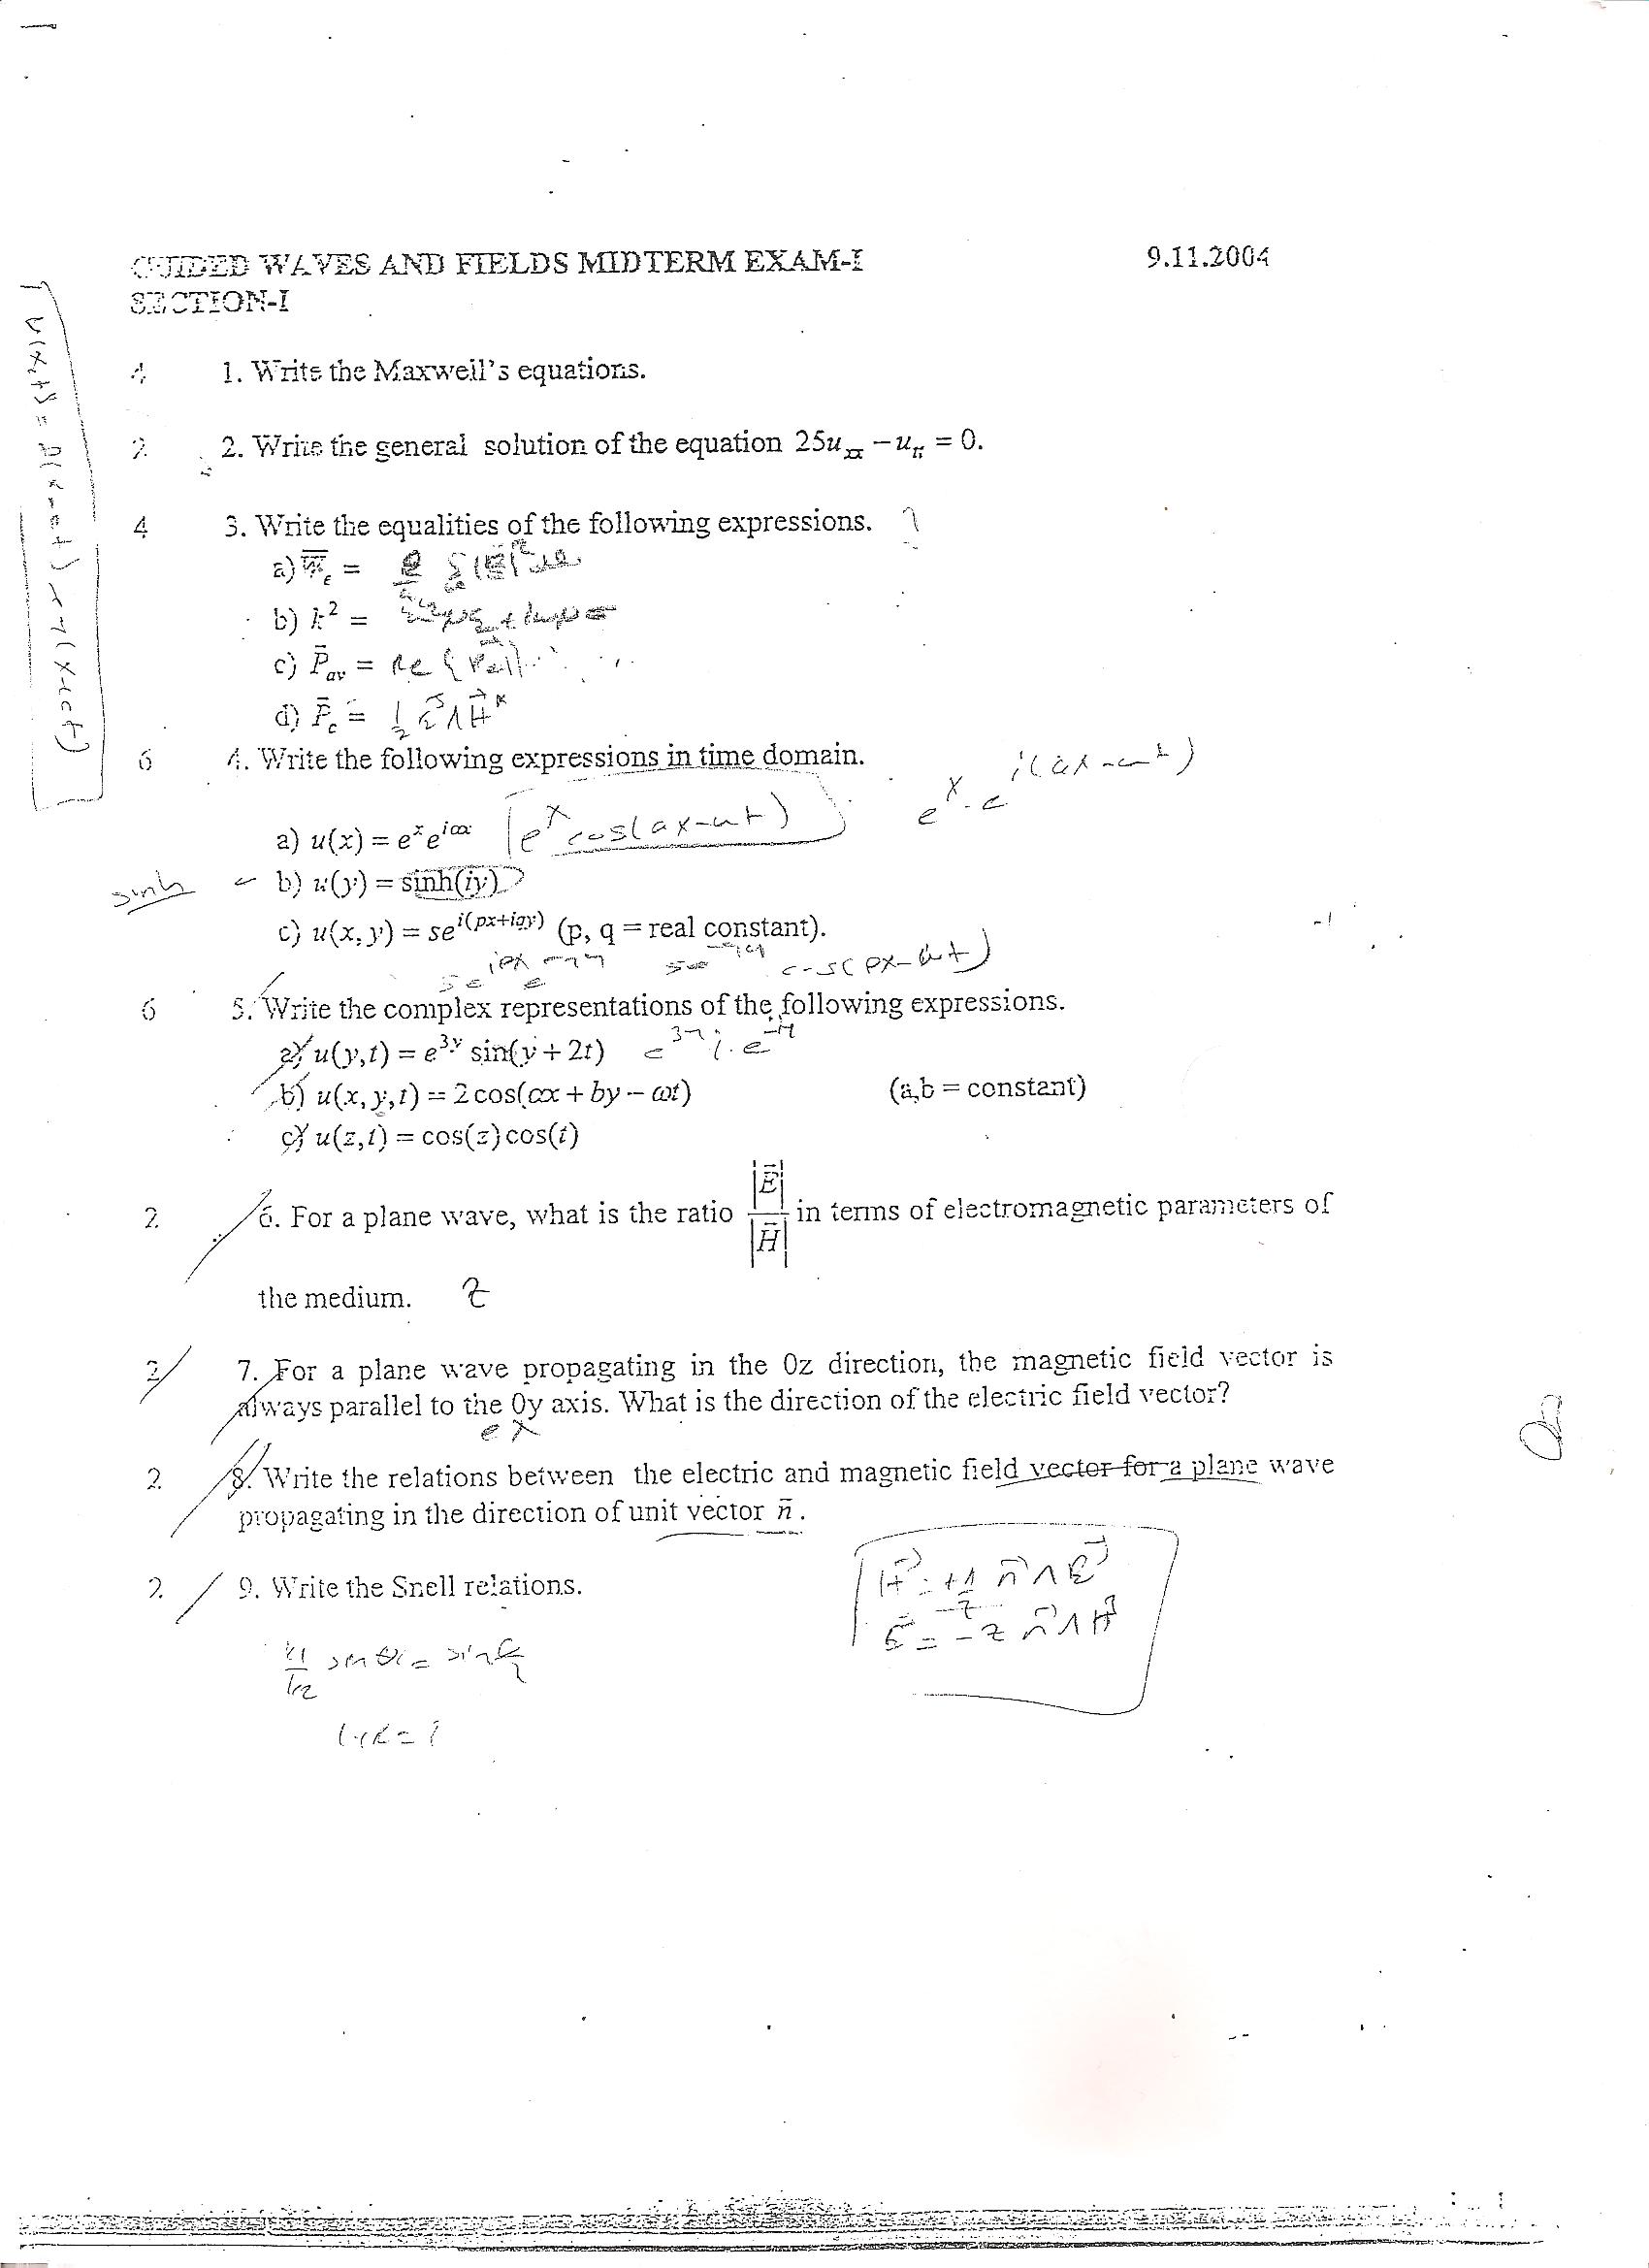 GUIDED WAVES AND FIELDS MIDTERM EXAM-I 9.11.2004
SECTION-I
4 1. Write the Maxwell's equations.
2 2. Write the general solution of the equation 25u_xx − u_tt = 0.
4 3. Write the equalities of the following expressions. ?
a) W̅_e =
b) k² =
c) P̄_av = Re {
d) P̄_c = 1/2 E⃗ Λ H⃗*
6 4. Write the following expressions in time domain.
e^x . e^i(ax-wt)
a) u(x) = e^x e^iax e^x cos(ax-wt)
sinh b) u(y) = sinh(iy)
c) u(x, y) = 5e^i(px+iqy) (p, q = real constant).
cos(px-wt)
6 5. Write the complex representations of the following expressions.
a) u(y,t) = e^3y sin(y + 2t) e^3y i.e^-iy
b) u(x, y,t) = 2cos(ax + by − ωt) (a,b = constant)
c) u(z,t) = cos(z)cos(t)
2 6. For a plane wave, what is the ratio |E⃗|/|H⃗| in terms of electromagnetic parameters of
the medium. Z
2 7. For a plane wave propagating in the Oz direction, the magnetic field vector is
always parallel to the Oy axis. What is the direction of the electric field vector?
ex
2 8. Write the relations between the electric and magnetic field vector for a plane wave
propagating in the direction of unit vector n⃗.
H⃗ = +1/Z n⃗ Λ E⃗
E⃗ = -Z n⃗ Λ H⃗
2 9. Write the Snell relations.